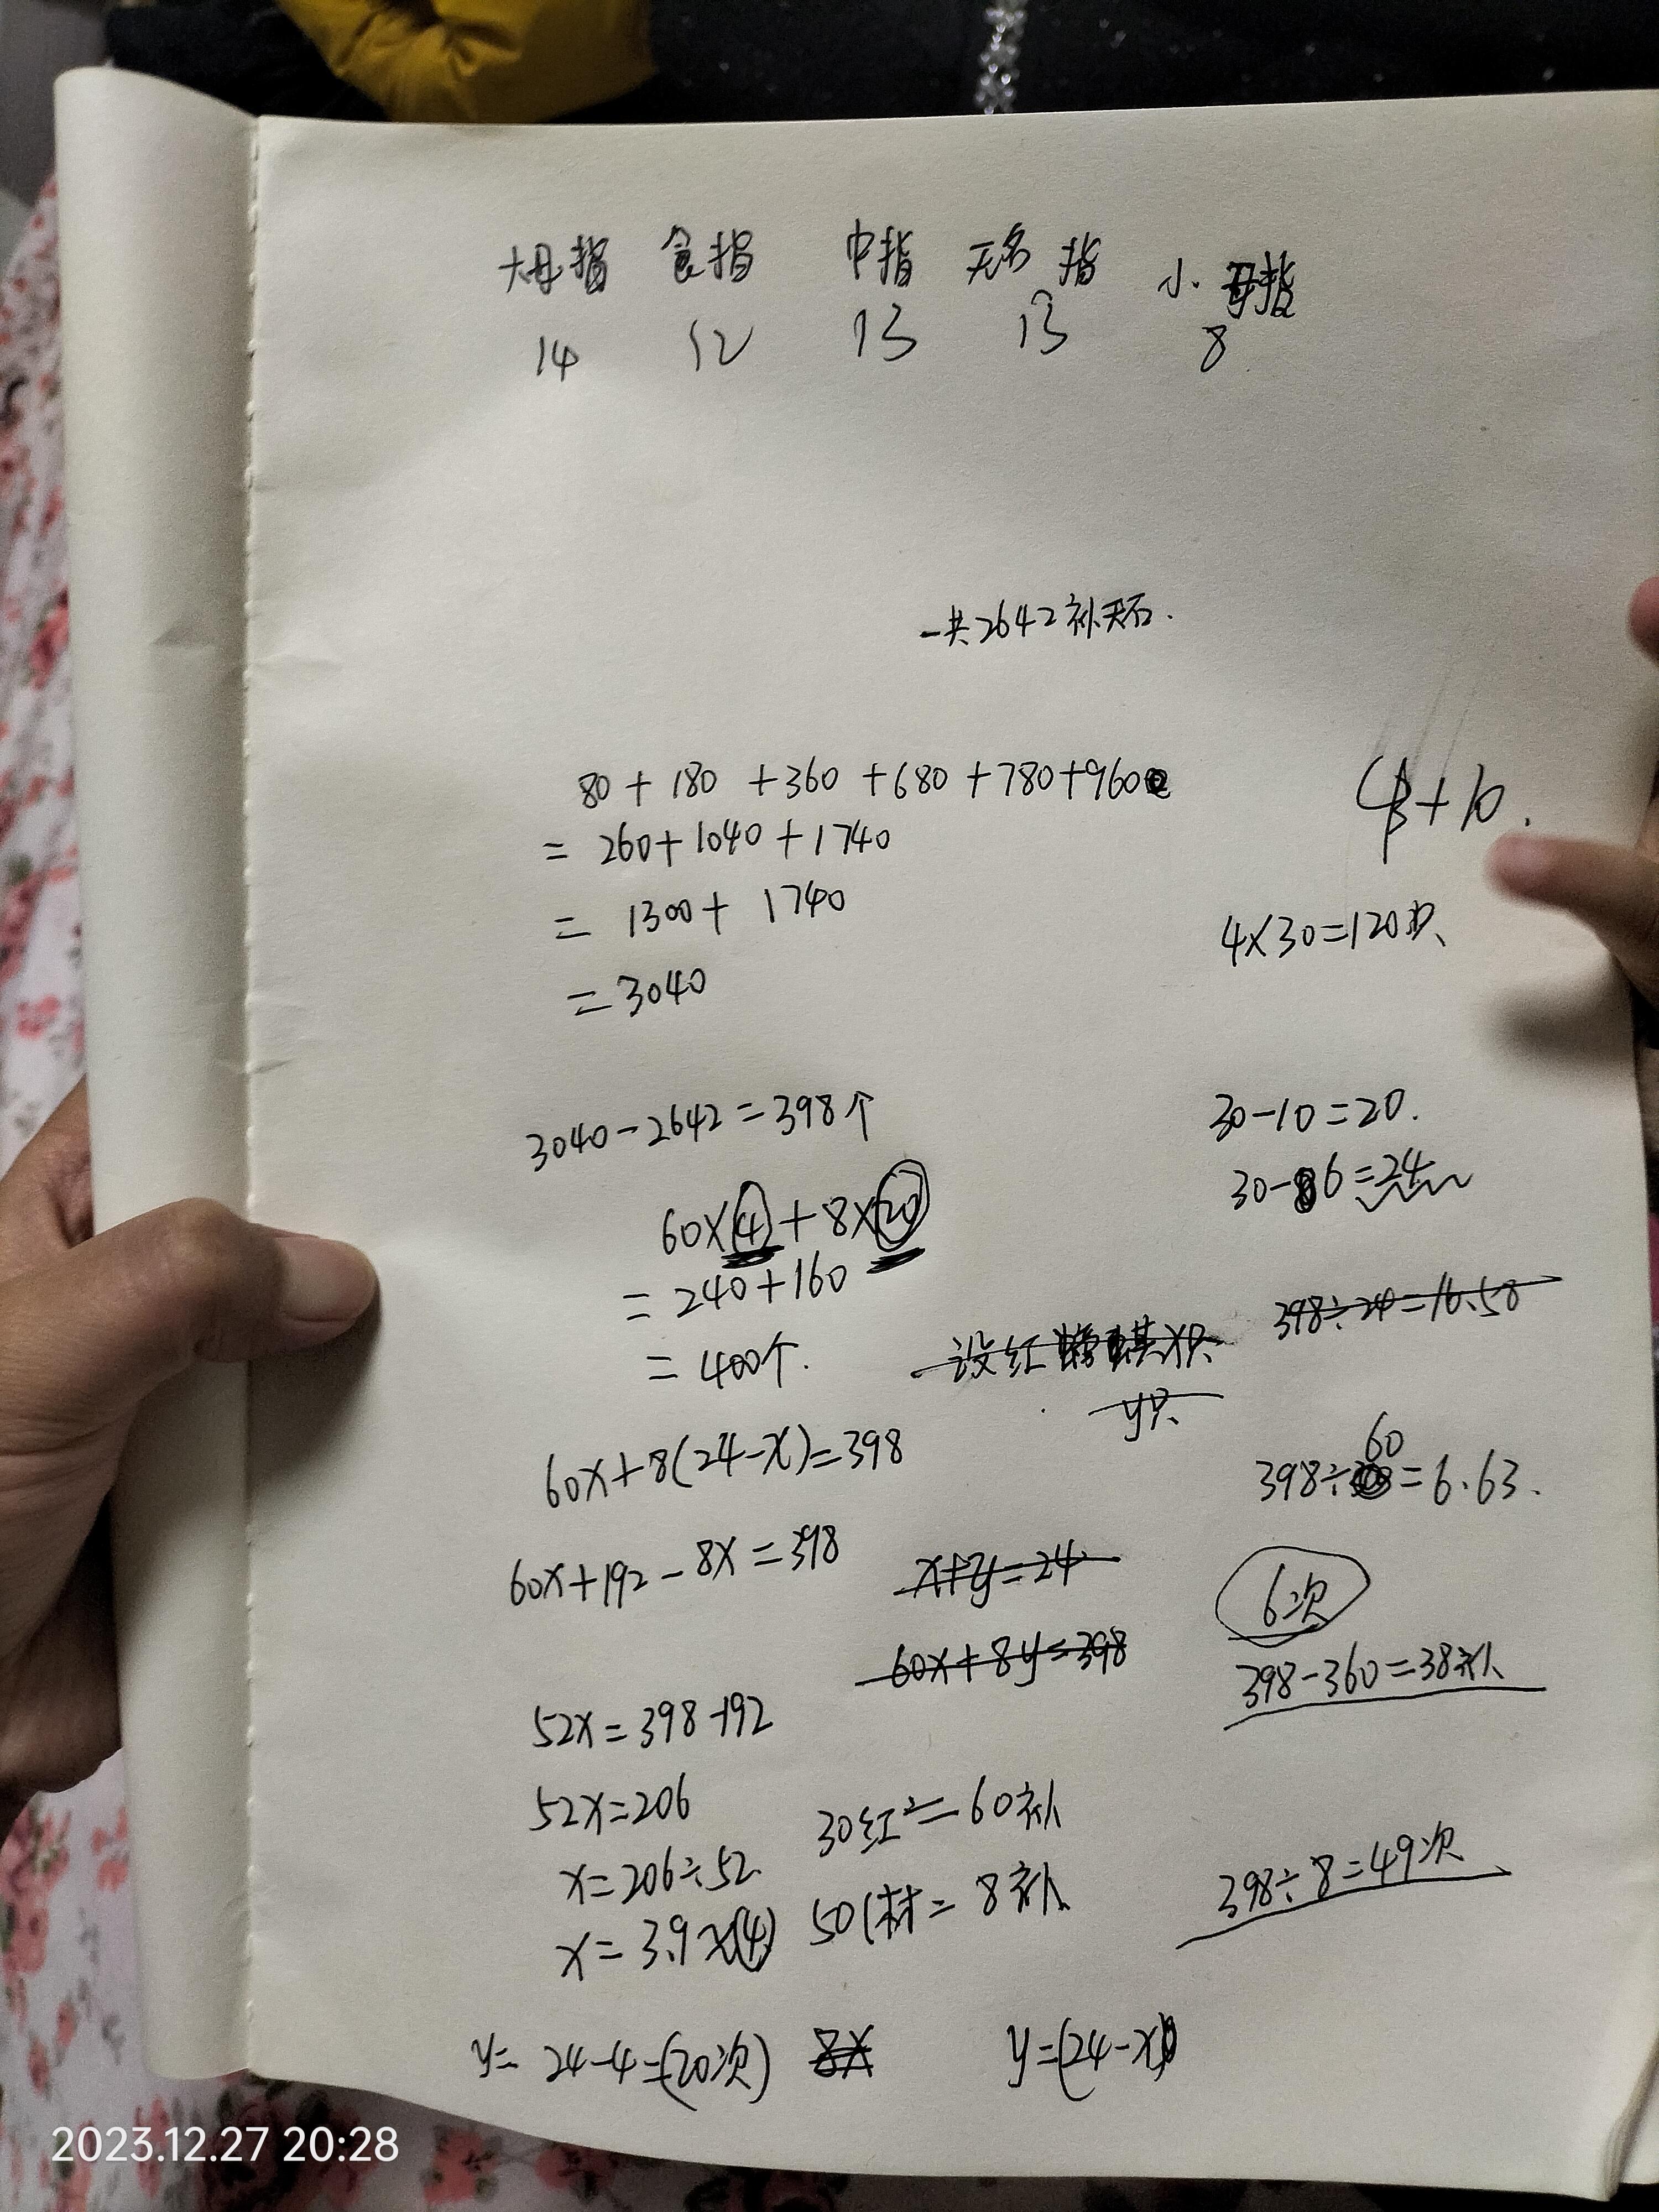 大母指 食指 中指 无名指 小母指
14 12 13 13 8
一共2642补天石.
80+180+360+680+780+960
=260+1040+1740
=1300+1740
=3040
+10.
4×30=120只
3040-2642=398个
60×4+8×20
=240+160
=400个.
30-10=20.
30-6=24
398÷24=16.58
设红 x只
y只
60x+8(24-x)=398
398÷60=6.63.
60x+192-8x=398
x+y=24
60x+8y=398
6次
398-360=38补
52x=398-192
52x=206
x=206÷52
x=3.9 (4)
30红=60补
50材=8补
398÷8=49次
y=24-4=(20次) 8x y=(24-x)
2023.12.27 20:28